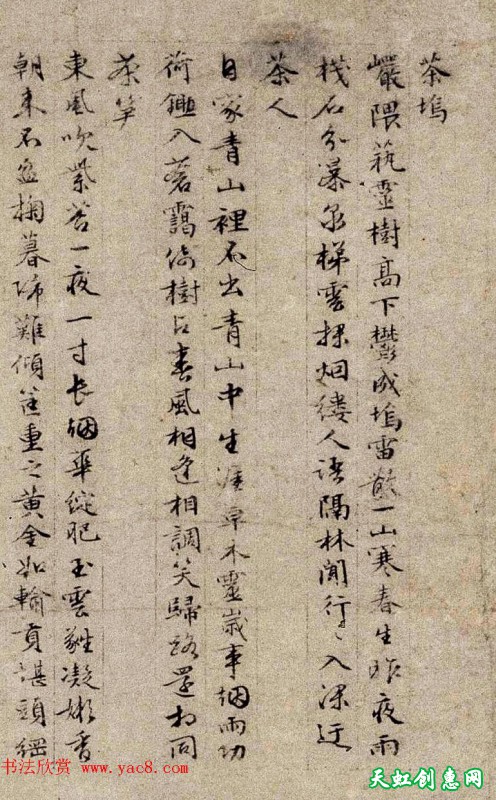 茶塢
巖隈藝靈樹高下鬱成塢雷散一山寒春生昨夜雨
棧石分瀑泉梯雲探烟縷人語隔林聞行行入深迂
茶人
自家青山裡不出青山中生涯草木靈歲事烟雨功
荷鋤入蒼靄倚樹占春風相逢相調笑歸路還相同
茶筍
東風吹紫苔一夜一寸長烟華綻肥玉雲蕤凝嫩香
朝來不盈掬暮歸難傾筐重之黃金如輸貢堪頭綱
书法欣赏 www.yac8.com
天虹创意网